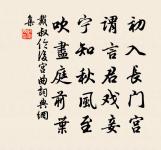 初入長門宮
謂言君戲妾
寧知秋風至
吹盡庭前葉
戴叔倫後宮曲詞典網
集